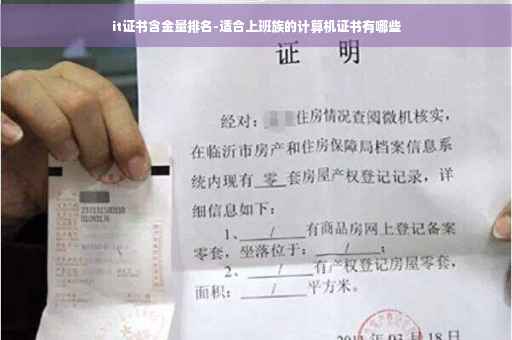 it证书含金量排名-适合上班族的计算机证书有哪些
证 明
经对：住房情况查阅微机核实，
在临沂市房产和住房保障局档案信息系
统内现有 零 套房屋产权登记记录，详
细信息如下：
1、 / 有商品房网上登记备案
零套，坐落位于： / ；
2、 / 有产权登记房屋零套，
面积： / 平方米。
03 月 18 日